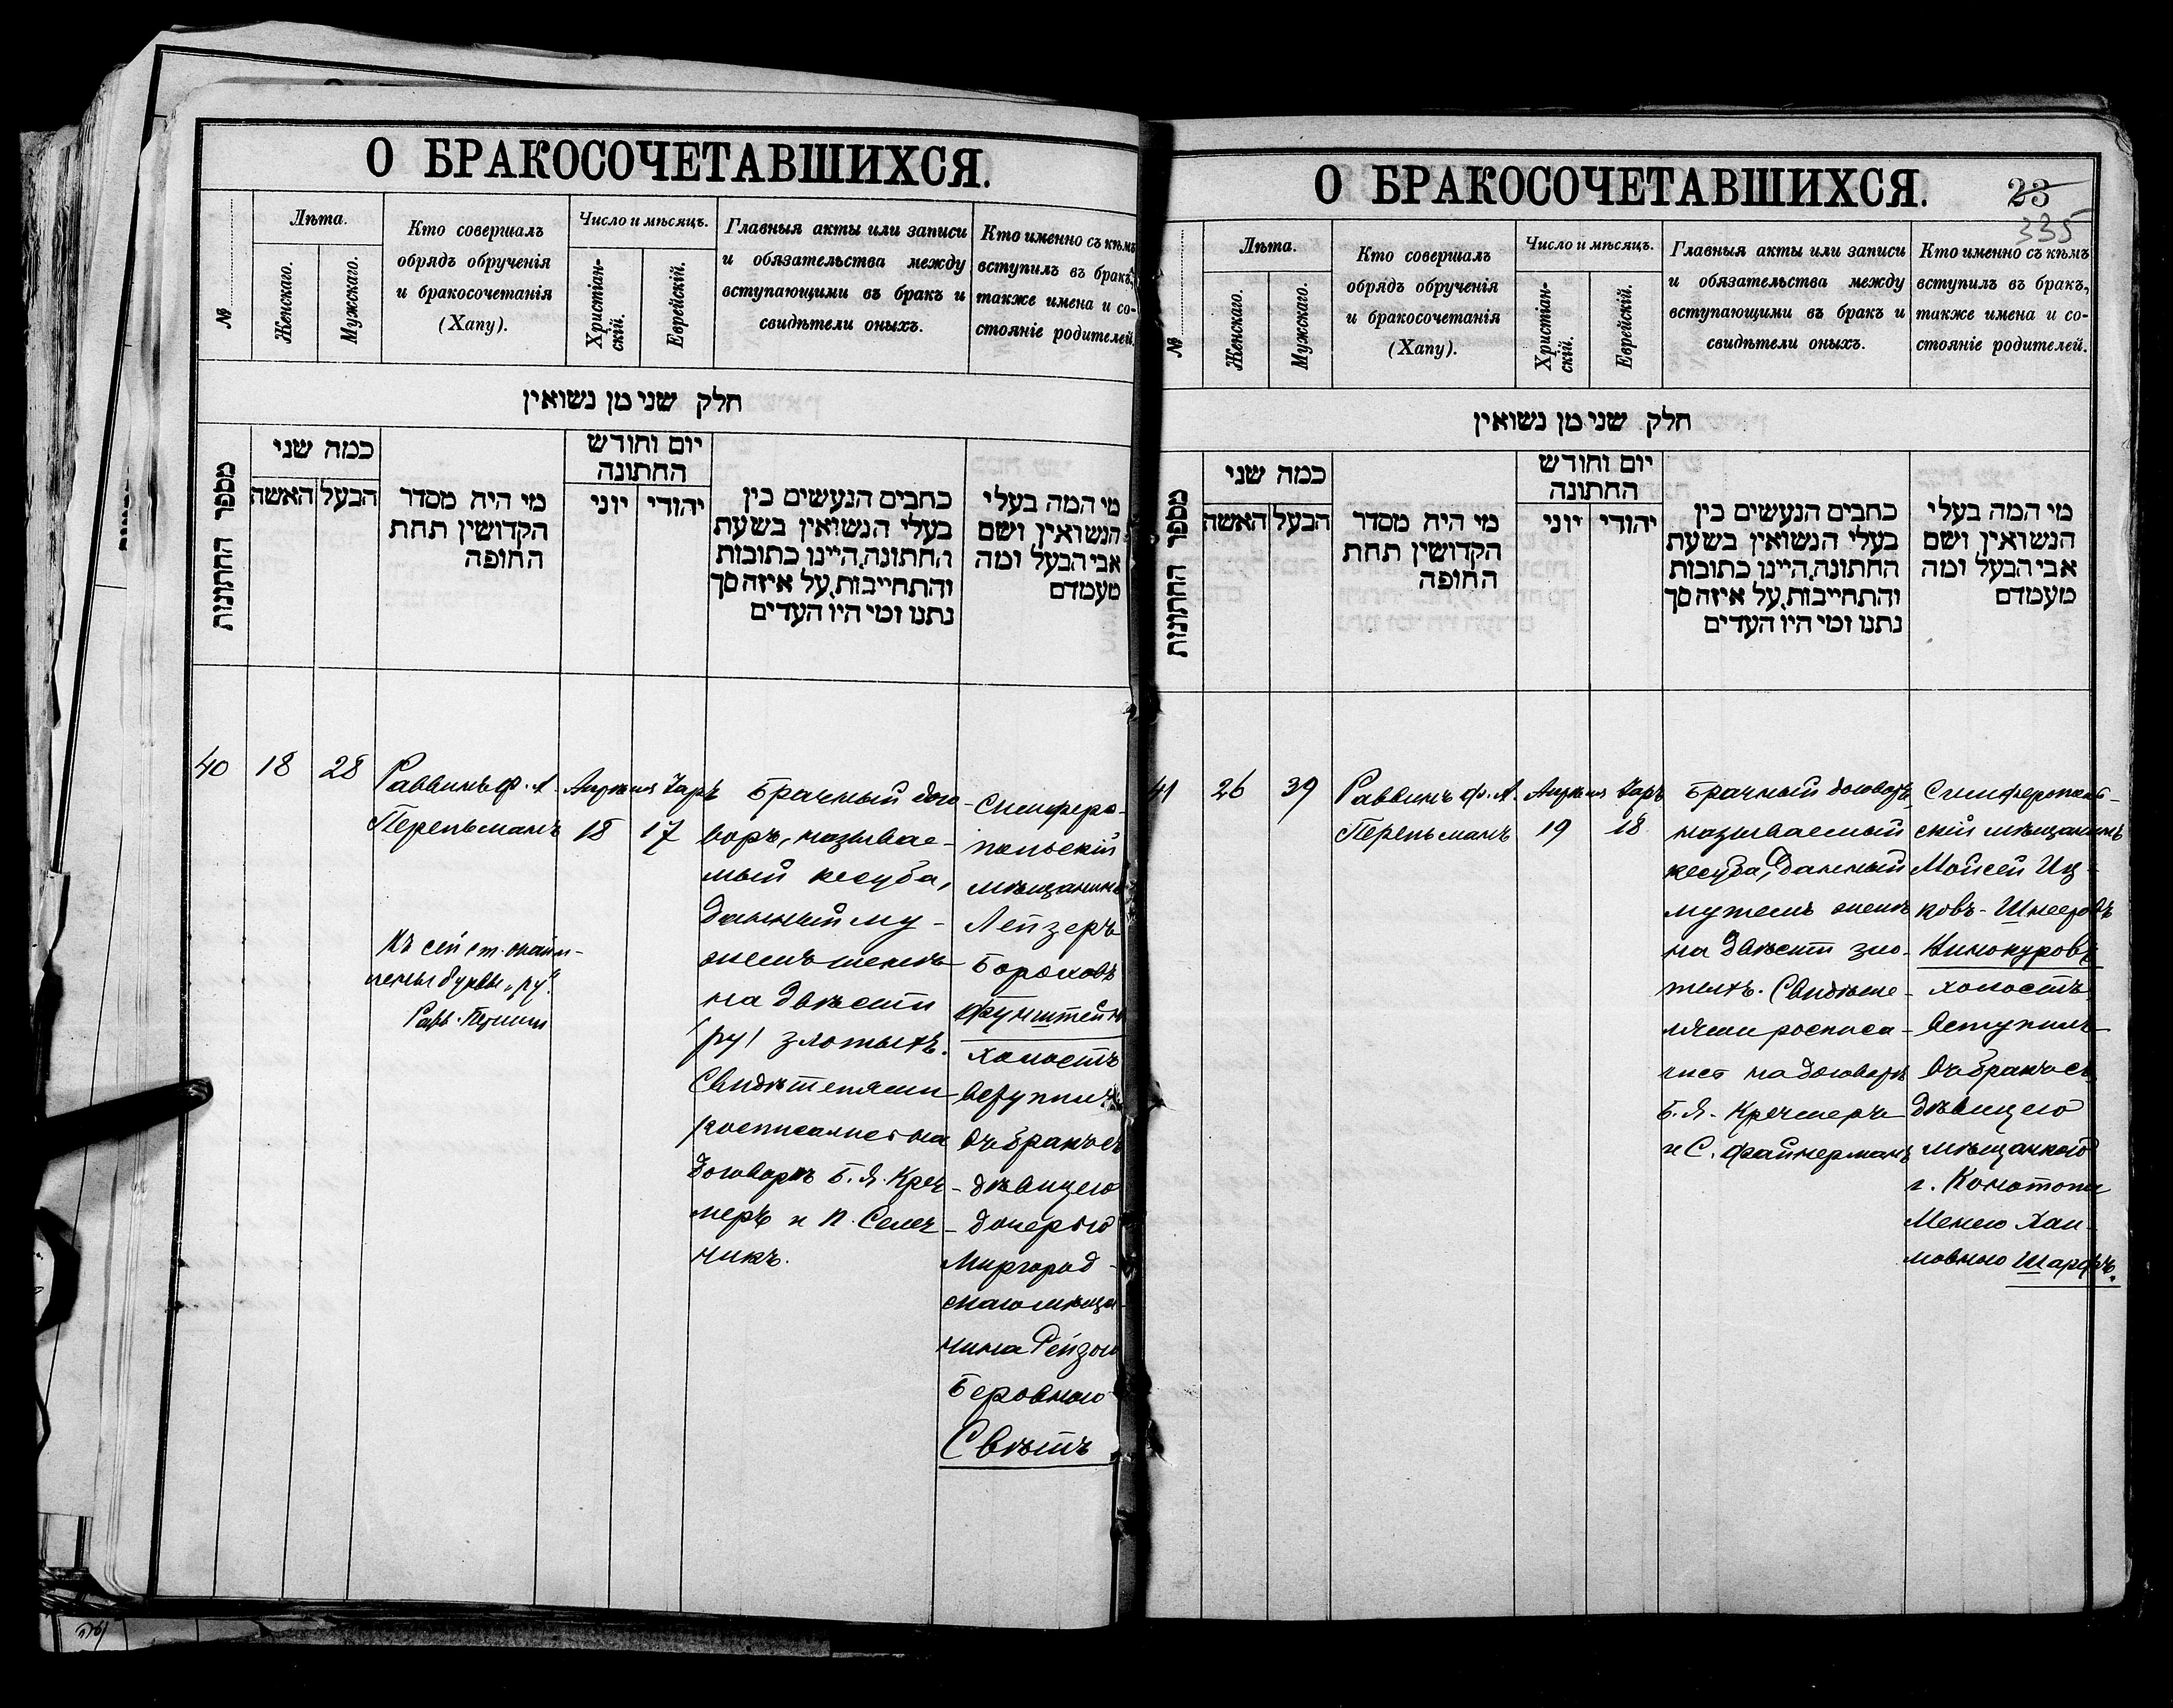 О БРАКОСОЧЕТАВШИХСЯ.
№
Лѣта.
Женскаго.
Мужскаго.
Кто совершалъ
обрядъ обрученія
и бракосочетанія
(Хапу).
Число и мѣсяцъ.
Христіан-
скій.
Еврейскій.
Главныя акты или записи
и обязательства между
вступающими въ бракъ и
свидѣтели оныхъ.
Кто именно съ кѣмъ
вступилъ въ бракъ,
также имена и со-
стояніе родителей.
חלק שני מן נשואין
מספר החתונות
כמה שני
האשה
הבעל
מי היה מסדר
הקדושין תחת
החופה
יום וחודש
החתונה
יוני
יהודי
כתבים הנעשים בין
בעלי הנשואין בשעת
החתונה, היינו כתובות
והתחייבות, על איזה סך
נתנו ומי היו העדים
מי המה בעלי
הנשואין ושם
אבי הבעל ומה
מעמדם
40
18
28
Раввинъ Ф. А.
Перельманъ
Къ сей ст.
буквы „ру".
Рав.
Апрѣля
18
Іаръ
17
Брачный дого-
воръ, называе-
мый кесуба,
данный му-
жемъ женѣ
на двѣсти
(ру) злотыхъ.
Свидѣтелями
росписались на
договорѣ Б. Я. Креч-
меръ и П. Селеч-
никъ.
Симферо-
польскій
мѣщанинъ
Лейзеръ
Бороховъ
Фунштейнъ
холостъ
вступилъ
въ бракъ съ
дѣвицею
дочерью
Миргород-
скаго мѣща-
нина Рейзою
Беровною
Свѣтъ
О БРАКОСОЧЕТАВШИХСЯ.
23
335
№
Лѣта.
Женскаго.
Мужскаго.
Кто совершалъ
обрядъ обрученія
и бракосочетанія
(Хапу).
Число и мѣсяцъ.
Христіан-
скій.
Еврейскій.
Главныя акты или записи
и обязательства между
вступающими въ бракъ и
свидѣтели оныхъ.
Кто именно съ кѣмъ
вступилъ въ бракъ,
также имена и со-
стояніе родителей.
חלק שני מן נשואין
מספר החתונות
כמה שני
האשה
הבעל
מי היה מסדר
הקדושין תחת
החופה
יום וחודש
החתונה
יוני
יהודי
כתבים הנעשים בין
בעלי הנשואין בשעת
החתונה, היינו כתובות
והתחייבות, על איזה סך
נתנו ומי היו העדים
מי המה בעלי
הנשואין ושם
אבי הבעל ומה
מעמדם
41
26
39
Раввинъ Ф. А.
Перельманъ
Апрѣля
19
Іаръ
18
Брачный договоръ,
называемый
кесуба, данный
мужемъ женѣ
на двѣсти зло-
тыхъ. Свидѣте-
лями росписа-
лись на договорѣ
Б. Я. Кречмеръ
и С. Файнерманъ
Симферополь-
скій мѣщанинъ
Мойсей Иц-
ковъ-Шнееровъ
Винокуровъ
холостъ
вступилъ
въ бракъ съ
дѣвицею
мѣщанкой
г. Конотопа
Менею Хаи-
мовною Шарфъ.